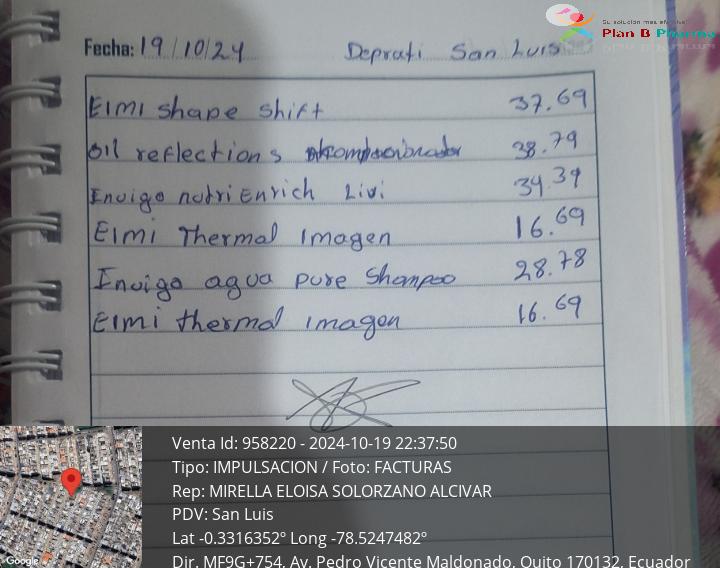 Su solución más efectiva!
Plan B Pharma
Fecha: 19/10/24 Deprati San Luis
EIMI shape shift 37.69
Oil reflections 38.79
Invigo nutri Enrich Livi 34.39
EIMI Thermal Imagen 16.69
Invigo aqua pure Shampoo 28.78
EIMI thermal imagen 16.69
Venta Id: 958220 - 2024-10-19 22:37:50
Tipo: IMPULSACION / Foto: FACTURAS
Rep: MIRELLA ELOISA SOLORZANO ALCIVAR
PDV: San Luis
Lat -0.3316352° Long -78.5247482°
Dir. MF9G+754, Av. Pedro Vicente Maldonado, Quito 170132, Ecuador
Google